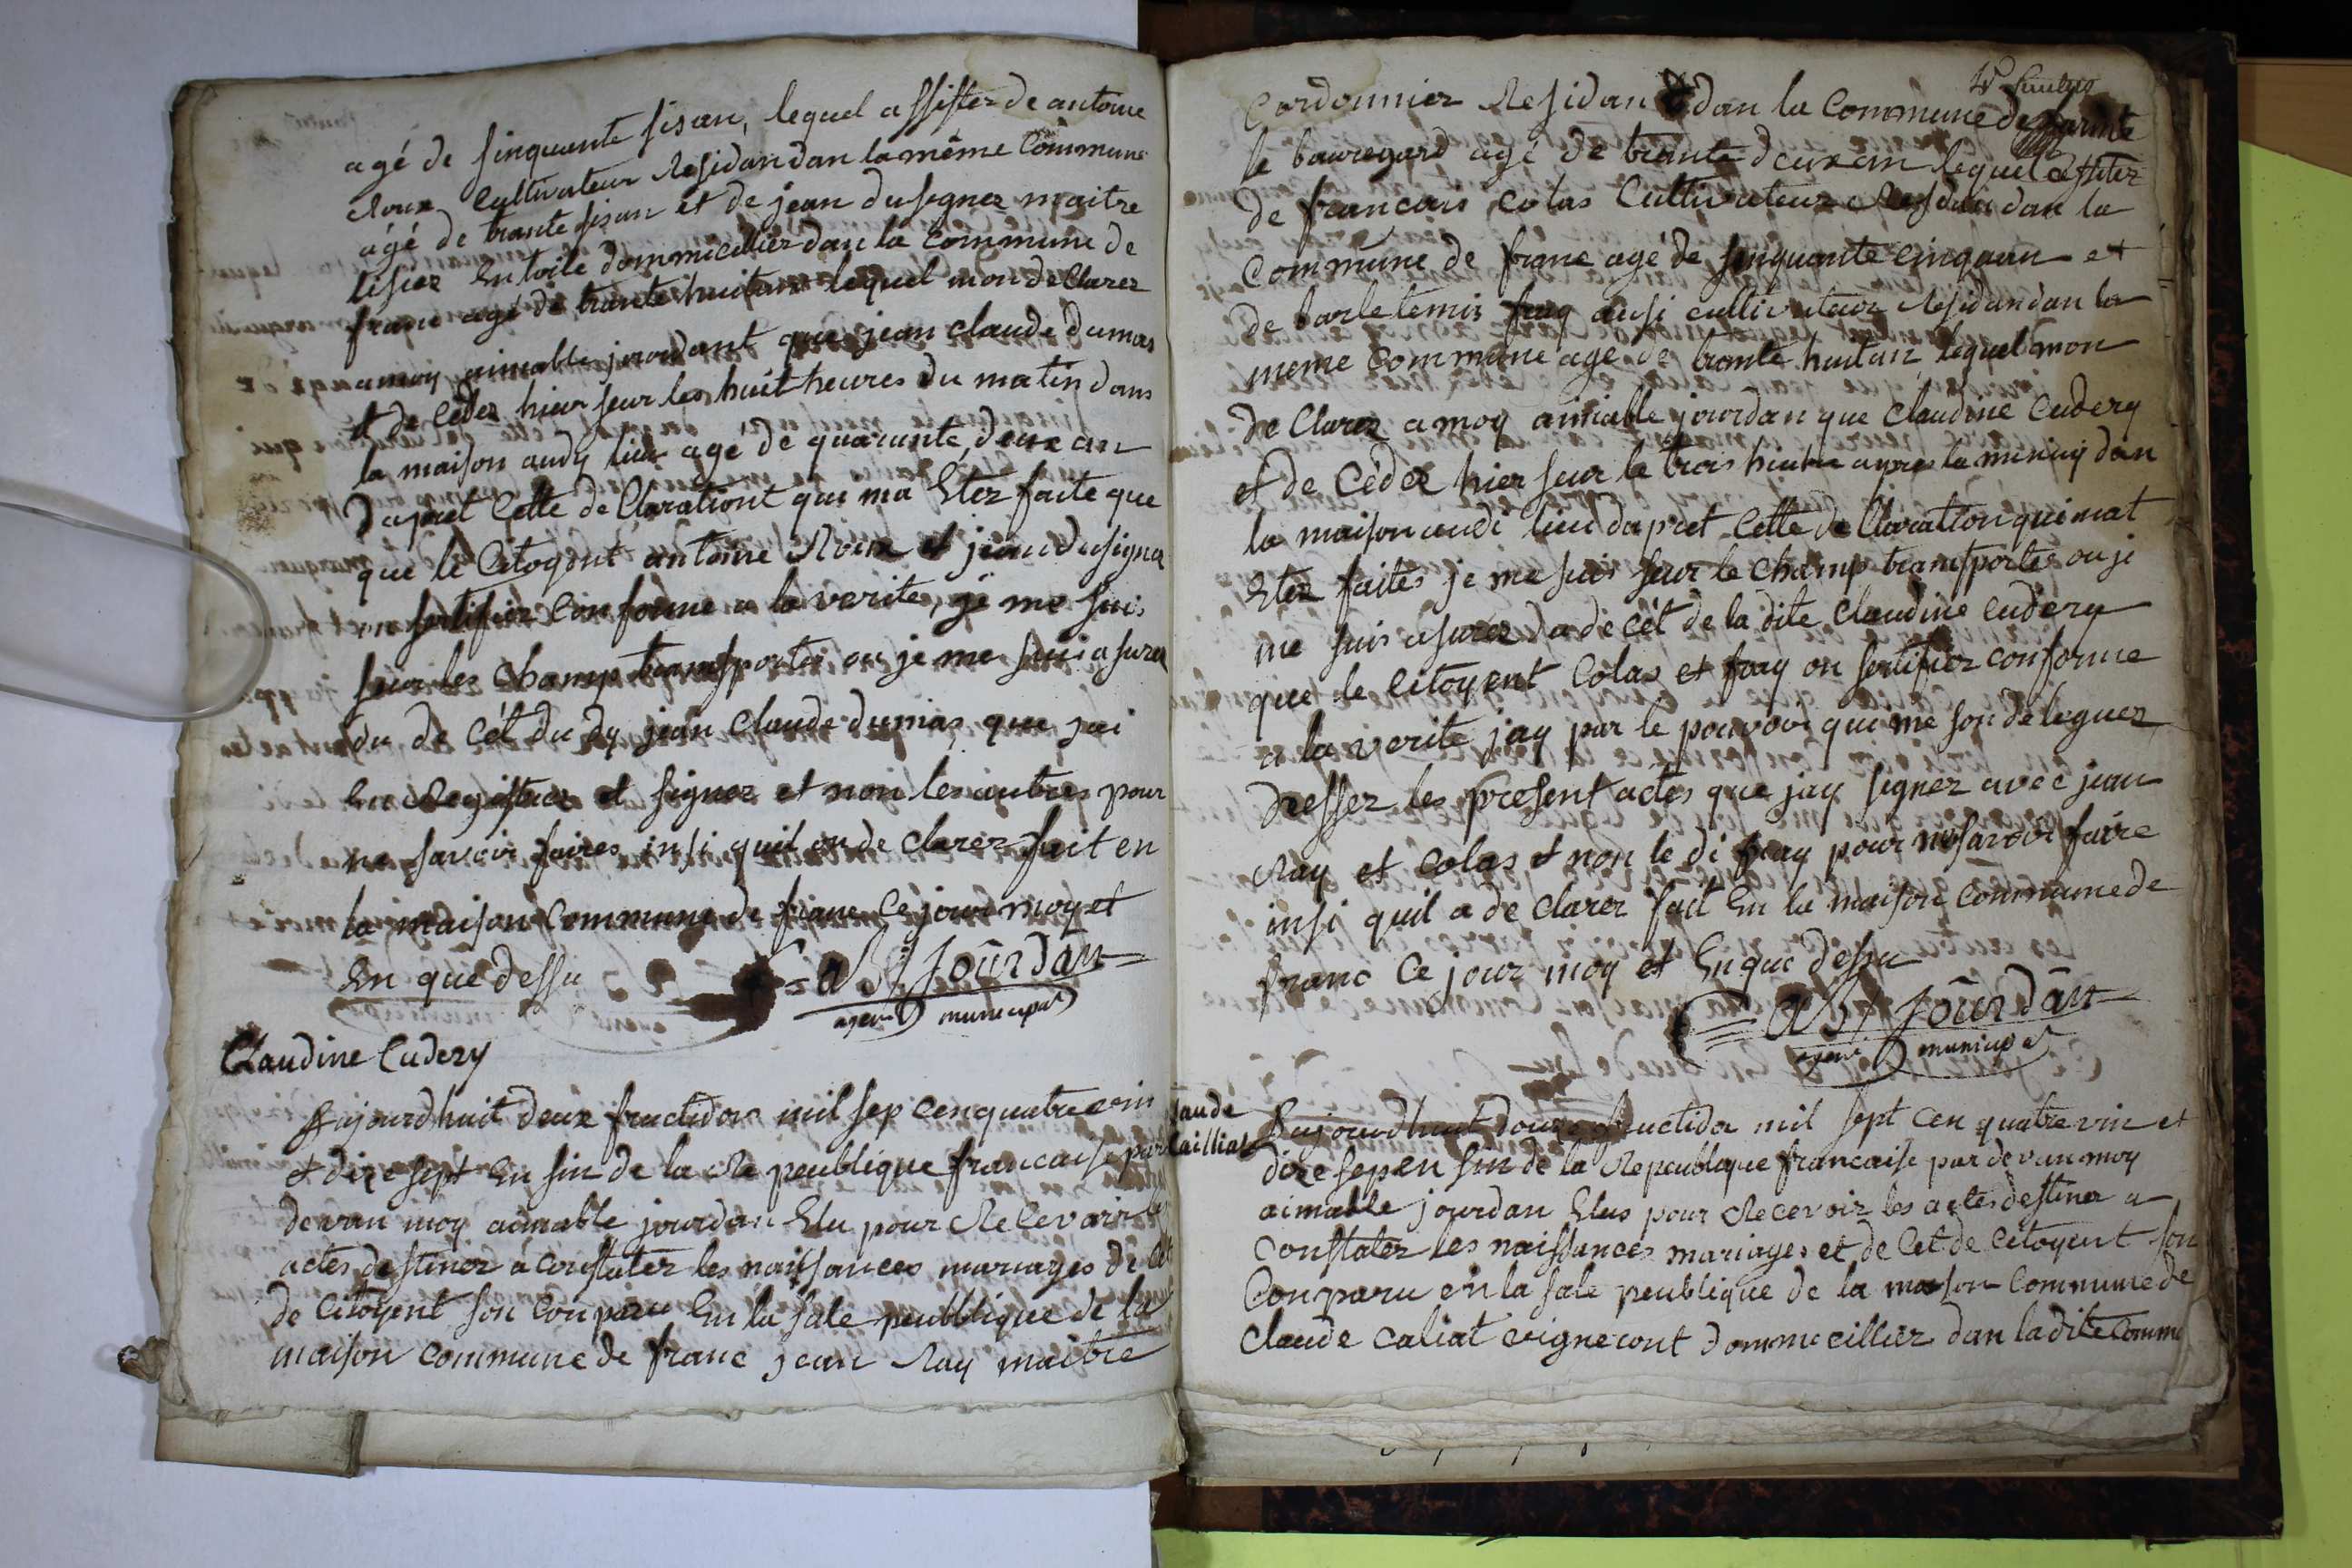 agé de sinquante sisan, lequel assister de antoine
Roux Cultivateur Residan dan la même Commune
agé de trante sisan et de jean dusegner maitre
tisier En toile dommicillier dan la Commune de
franc agé de trante huitans lequel mon de Clarez
a moy aimable jourdant que jean claude dumas
et de Ceder hier seur les huit heures du matin dans
la maison audy lieu agé de quarante, deux an
Dapret Cette de Clarationt qui ma Etez faite que
que le Citoyent antoine Roux et jean dusigner
on sertifier Conforme a la verite, je me suis
seur les Champ transportes ou je me suis a surer
du de Cét du dy jean Claude dumas, que jai
En Registrer et signer et non les autres pour
ne savoir faires insi quil on de clarer fait en
la maison Commune de franc Ce jour moy et
En que dessu = a B jourdan =
agent municipal
Claudine Cudery
Aujourdhuit deux fructidor mil sep cen quatre vin
et dixe sept En sin de la Re peublique francaise par
devan moy aimable jourdan Elu pour Recevoir les
actes destiner a constater les naissances mariages de Cet
de Citoyent son Conparu En la sale peubblique de la
maison Commune de franc jean Ray maitre
Cordonnier Residan dan la Commune de sainte
le bauregard agé de trante deux an lequel assister
de francois Colas Cultivateur Residan dan la
Commune de franc agé de sinquante cinquan et
de barletemis fray ausi cultivateur Residan dan la
meme Commune age de trante huitan lequel mon
de Clarez a moy aimable jourdan que Claudine Cudery
et de Céder hier seur le trois heure apres la minuy dan
la maison audi lieu dapret Cette de Claration qui mat
Etez faites je me suis seur le Champ transportes ou je
me suis asurez du de cét de la dite Claudine Cudery
que le Citoyent Colas et fray on sertifier conforme
a la verite jay par le pouvoir qui me son deleguez
Dresser les present actes que jay signez avec jean
Ray et Colas et non le di fray pour ne savoir faire
insi quil a de clarer fait En la maison Commune de
franc Ce jour moy et En que dessu
= a B jourdan =
agent municipal
Claude
Cailliat
Aujourdhuit douze fructidor mil sept cen quatre vin et
dixe sep en sin de la Republique francaise par devan moy
aimable jourdan Elus pour Recevoir les actes destiner a
Constater les naissances mariages et de Cet de Citoyent son
Conparu en la sale peublique de la maison Commune de
Claude Caliat vigneront dommecillier dan la dite Comme